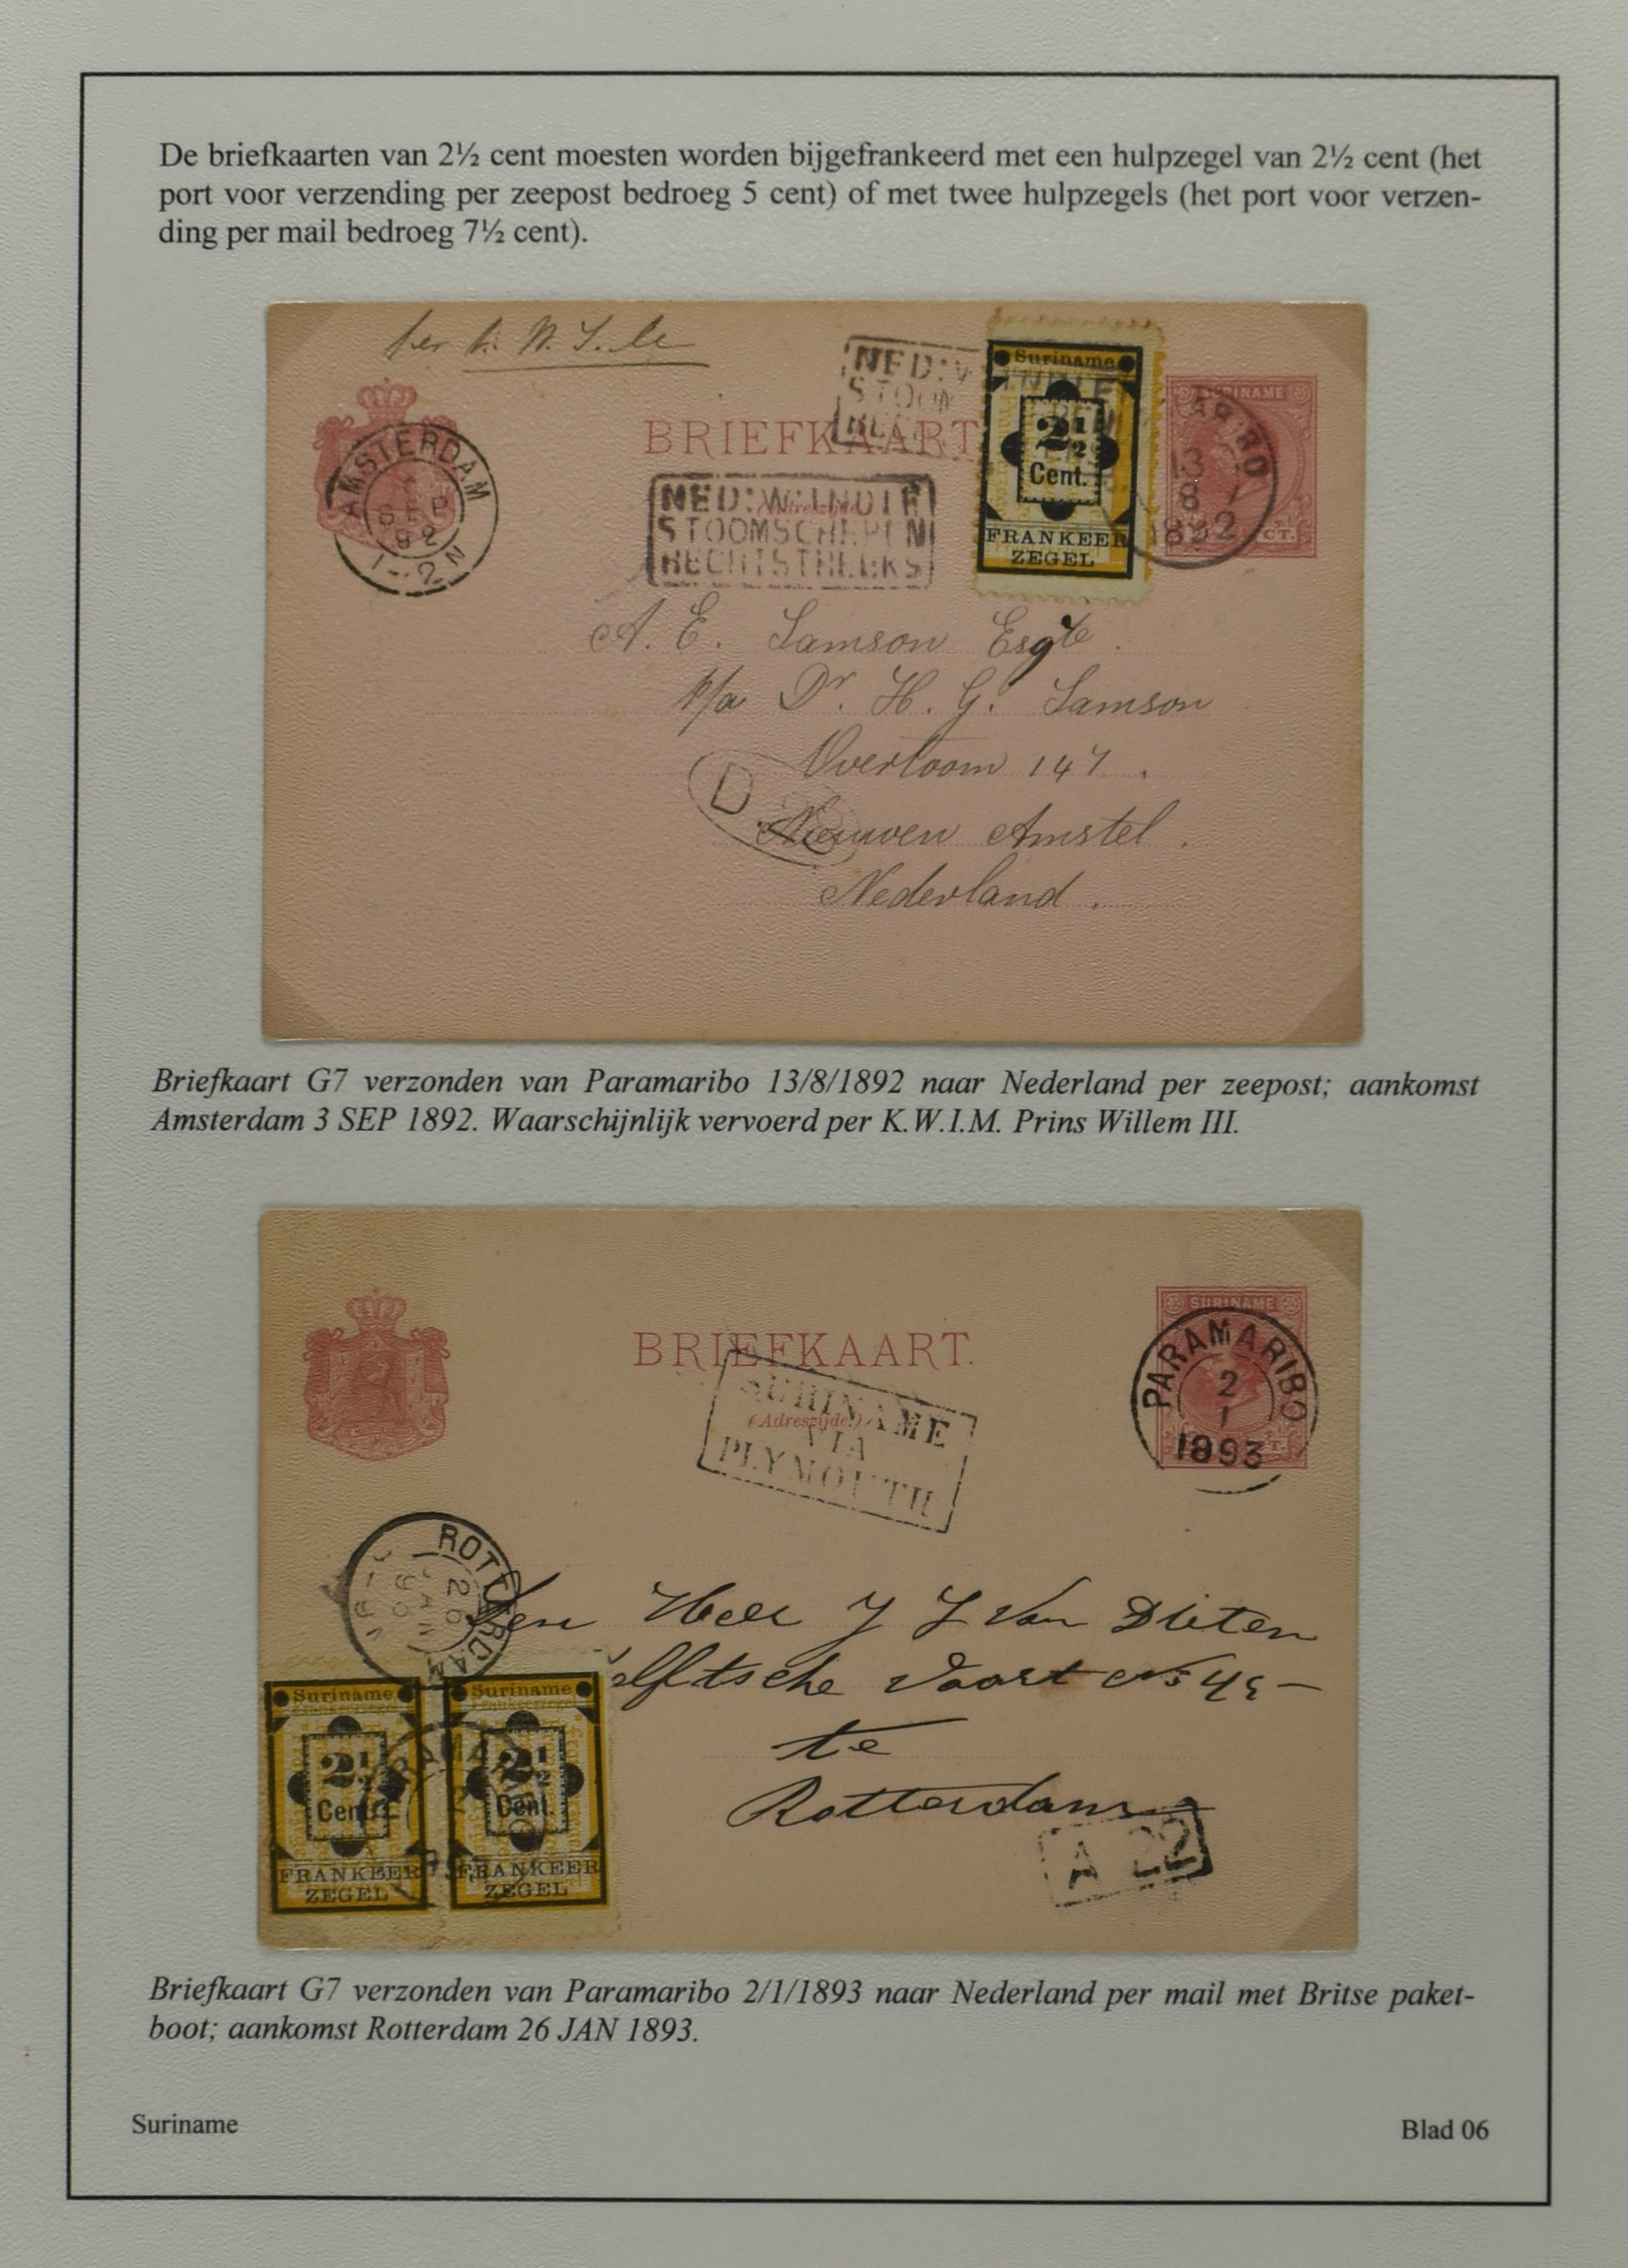 De briefkaarten van 2½ cent moesten worden bijgefrankeerd met een hulpzegel van 2½ cent (het
port voor verzending per zeepost bedroeg 5 cent) of met twee hulpzegels (het port voor verzen-
ding per mail bedroeg 7½ cent).
per
NED: W: INDIE
STOOM
SURINAME
CT.
Suriname
2½
Cent.
FRANKEER
ZEGEL
PARAMARIBO
13
8
1892
BRIEFKAART
(Adreszijde)
AMSTERDAM
SEP
92
1-2 N
NED: W: INDIE
STOOMSCHEPEN
RECHTSTREEKS
A. E. Samson Esqre.
p/a Dr. H. G. Samson
Overtoom 147.
D
Nieuwen Amstel.
Nederland.
Briefkaart G7 verzonden van Paramaribo 13/8/1892 naar Nederland per zeepost; aankomst
Amsterdam 3 SEP 1892. Waarschijnlijk vervoerd per K.W.I.M. Prins Willem III.
SURINAME
CT.
PARAMARIBO
2
1
1893
BRIEFKAART.
(Adreszijde.)
SURINAME
VIA
PLYMOUTH
ROTTERDAM
26
JAN
93
Den Heer J J Van Dieten
elftsche Vaart No
te
Rotterdam
A 22
Suriname
2½
Cent.
FRANKEER
ZEGEL
Suriname
2½
Cent.
FRANKEER
ZEGEL
Briefkaart G7 verzonden van Paramaribo 2/1/1893 naar Nederland per mail met Britse paket-
boot; aankomst Rotterdam 26 JAN 1893.
Suriname
Blad 06